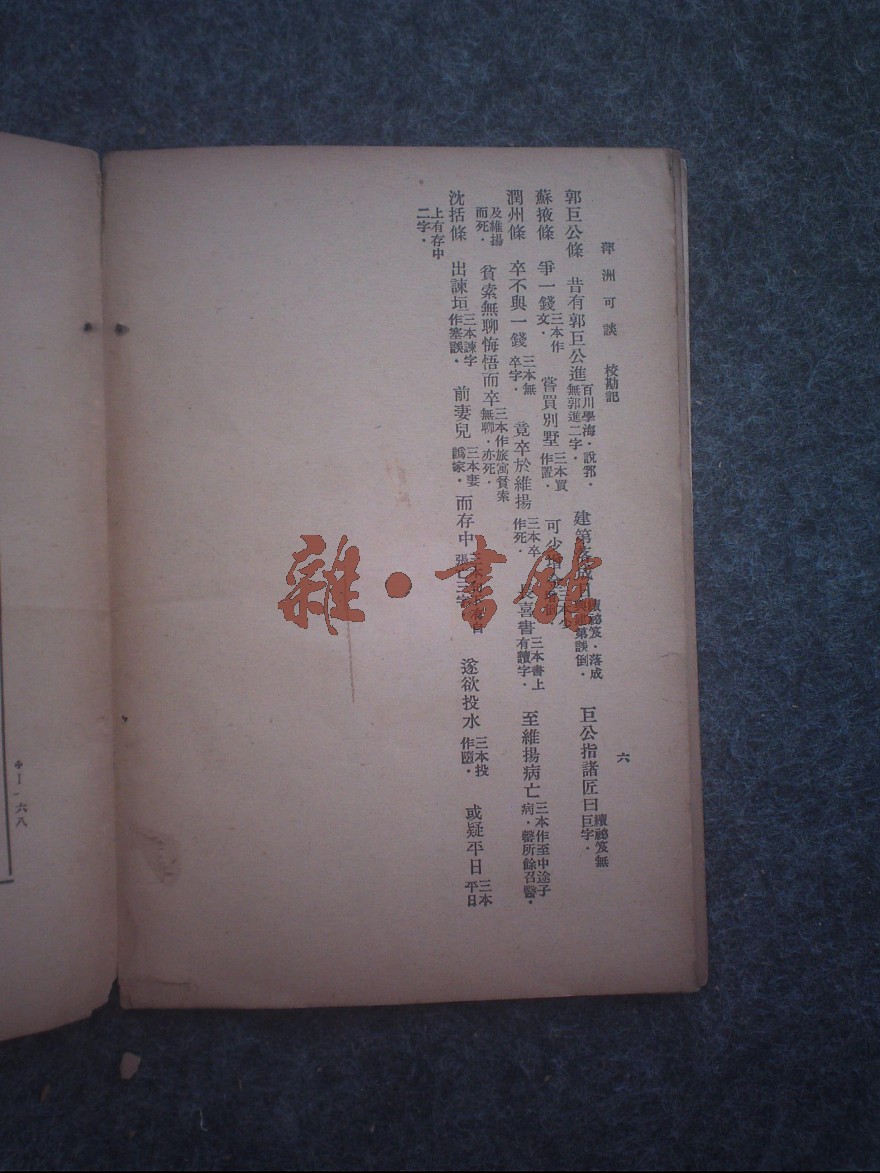 萍洲可談　校勘記　六
郭巨公條　昔有郭巨公進百川學海・說郛・無郭進二字・　建第落成日續祕笈・落成第誤倒・　巨公指諸匠曰續祕笈無巨字・
蘇掖條　爭一錢三本作文・　嘗買別墅三本買作置・　可少
潤州條　卒不與一錢三本無卒字・　竟卒於維揚三本卒作死・　喜書三本書上有讀字・　至維揚病亡三本作至中途子病・罄所餘召醫・
及維揚而死・　貧索無聊悔悟而卒三本作旅寓貧索無聊・亦死・
沈括條　出諫垣三本諫字作塞誤・　前妻兒三本妻爲家・　而存中　遂欲投水三本投作隨・　或疑平日三本平日
上有存中二字・
雜・書館
中一・六八